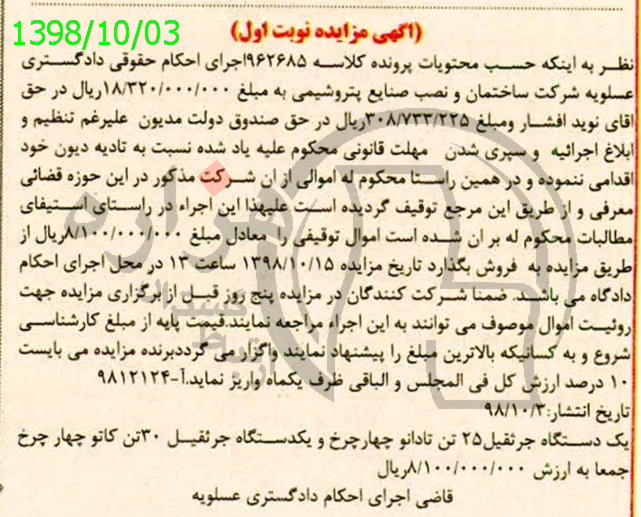 1398/10/03
(آگهی مزایده نوبت اول)
نظر به اینکه حسب محتویات پرونده کلاسه ۹۶۲۶۸۵اجرای احکام حقوقی دادگستری
عسلویه شرکت ساختمان و نصب صنایع پتروشیمی به مبلغ ۱۸/۳۲۰/۰۰۰/۰۰۰ریال در حق
اقای نوید افشار ومبلغ ۳۰۸/۷۳۳/۲۲۵ریال در حق صندوق دولت مدیون علیرغم تنظیم و
ابلاغ اجرائیه و سپری شدن مهلت قانونی محکوم علیه یاد شده نسبت به تادیه دیون خود
اقدامی ننموده و در همین راستا محکوم له اموالی از ان شرکت مذکور در این حوزه قضائی
معرفی و از طریق این مرجع توقیف گردیده است علیهذا این اجراء در راستای استیفای
مطالبات محکوم له بر ان شده است اموال توقیفی را معادل مبلغ ۸/۱۰۰/۰۰۰/۰۰۰ریال از
طریق مزایده به فروش بگذارد تاریخ مزایده ۱۳۹۸/۱۰/۱۵ ساعت ۱۳ در محل اجرای احکام
دادگاه می باشد. ضمنا شرکت کنندگان در مزایده پنج روز قبل از برگزاری مزایده جهت
روئیت اموال موصوف می توانند به این اجراء مراجعه نمایند.قیمت پایه از مبلغ کارشناسی
شروع و به کسانیکه بالاترین مبلغ را پیشنهاد نمایند واگزار می گرددبرنده مزایده می بایست
۱۰ درصد ارزش کل فی المجلس و الباقی ظرف یکماه واریز نماید.آ-۹۸۱۲۱۲۴
تاریخ انتشار:۹۸/۱۰/۳
یک دستگاه جرثقیل۲۵ تن تادانو چهارچرخ و یکدستگاه جرثقیل ۳۰تن کاتو چهار چرخ
جمعا به ارزش ۸/۱۰۰/۰۰۰/۰۰۰ریال
قاضی اجرای احکام دادگستری عسلویه